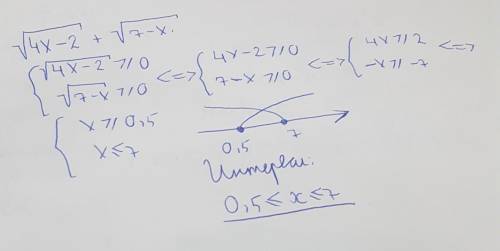 √4x-2 + √7-x.
{ √4x-2 ⩾ 0 <=> { 4x-2 ⩾ 0 <=> { 4x ⩾ 2 <=>
√7-x ⩾ 0 7-x ⩾ 0 -x ⩾ -7
{ x ⩾ 0,5
x ≤ 7
0,5 7
Интервал:
0,5 ≤ x ≤ 7